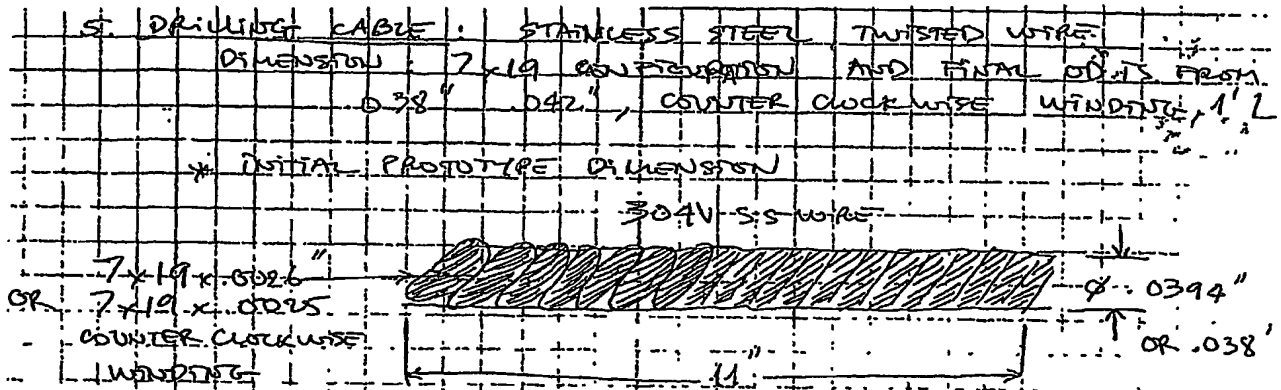 5. DRILLING CABLE : STAINLESS STEEL TWISTED WIRE.
DIMENSION : 7 x 19 CONFIGURATION AND FINAL OD IS FROM
0.38" .042", COUNTER CLOCKWISE WINDING, 1' L
* INITIAL PROTOTYPE DIMENSION
304V S.S WIRE
7 x 19 x .0026"
OR 7 x 19 x .0025
COUNTER CLOCKWISE
WINDING
Ø .0394"
OR .038"
11"